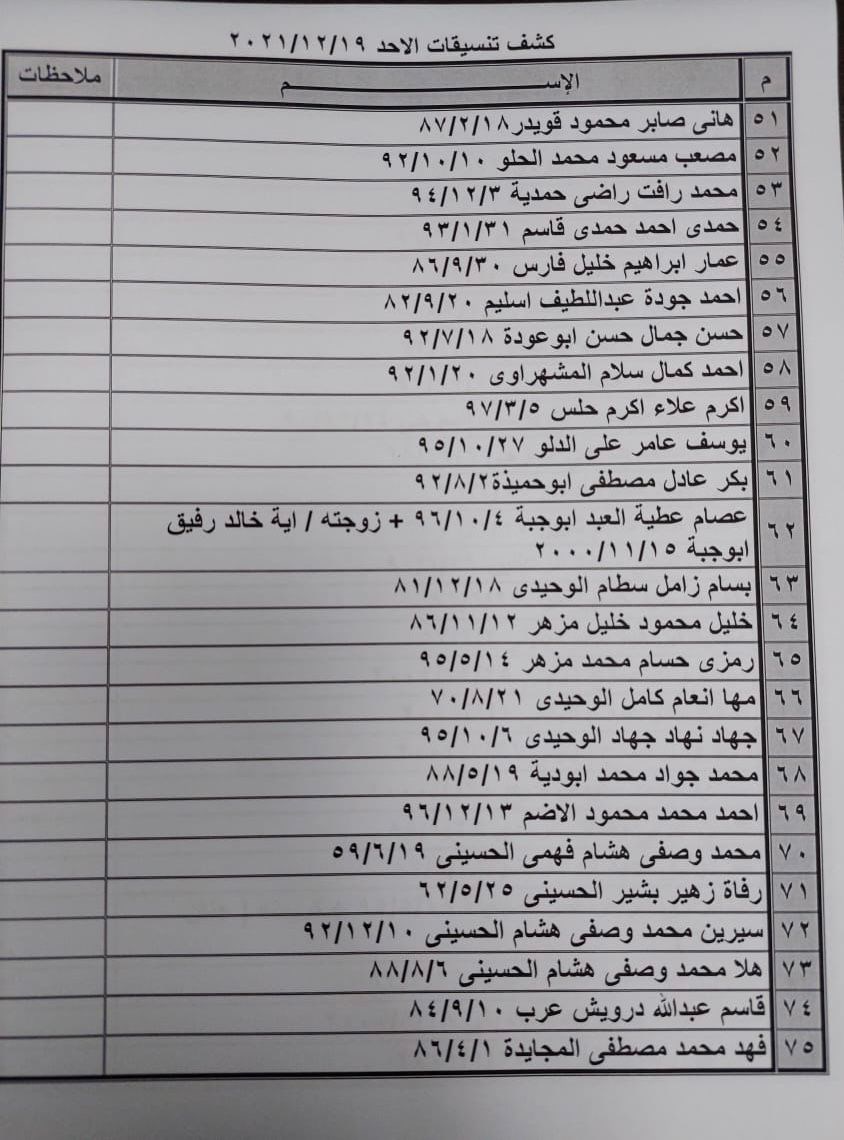 كشف تنسيقات الاحد ٢٠٢١/١٢/١٩
م الإســـــــــم ملاحظات
٥١ هانى صابر محمود قويدر٨٧/٢/١٨
٥٢ مصعب مسعود محمد الحلو ٩٢/١٠/١٠
٥٣ محمد رافت راضى حمدية ٩٤/١٢/٣
٥٤ حمدى احمد حمدى قاسم ٩٣/١/٣١
٥٥ عمار ابراهيم خليل فارس ٨٦/٩/٣٠
٥٦ احمد جودة عبداللطيف اسليم ٨٢/٩/٢٠
٥٧ حسن جمال حسن ابوعودة ٩٢/٧/١٨
٥٨ احمد كمال سلام المشهراوى ٩٢/١/٢٠
٥٩ اكرم علاء اكرم حلس ٩٧/٣/٥
٦٠ يوسف عامر على الدلو ٩٥/١٠/٢٧
٦١ بكر عادل مصطفى ابوحميذة٩٢/٨/٢
٦٢ عصام عطية العبد ابوجبة ٩٦/١٠/٤ + زوجته / اية خالد رفيق
ابوجبة ٢٠٠٠/١١/١٥
٦٣ بسام زامل سطام الوحيدى ٨١/١٢/١٨
٦٤ خليل محمود خليل مزهر ٨٦/١١/١٢
٦٥ رمزى حسام محمد مزهر ٩٥/٥/١٤
٦٦ مها انعام كامل الوحيدى ٧٠/٨/٢١
٦٧ جهاد نهاد جهاد الوحيدى ٩٥/١٠/٦
٦٨ محمد جواد محمد ابودية ٨٨/٥/١٩
٦٩ احمد محمد محمود الاضم ٩٦/١٢/١٣
٧٠ محمد وصفى هشام فهمى الحسينى ٥٩/٦/١٩
٧١ رفاة زهير بشير الحسينى ٦٢/٥/٢٥
٧٢ سيرين محمد وصفى هشام الحسينى ٩٢/١٢/١٠
٧٣ هلا محمد وصفى هشام الحسينى ٨٨/٨/٦
٧٤ قاسم عبدالله درويش عرب ٨٤/٩/١٠
٧٥ فهد محمد مصطفى المجايدة ٨٦/٤/١